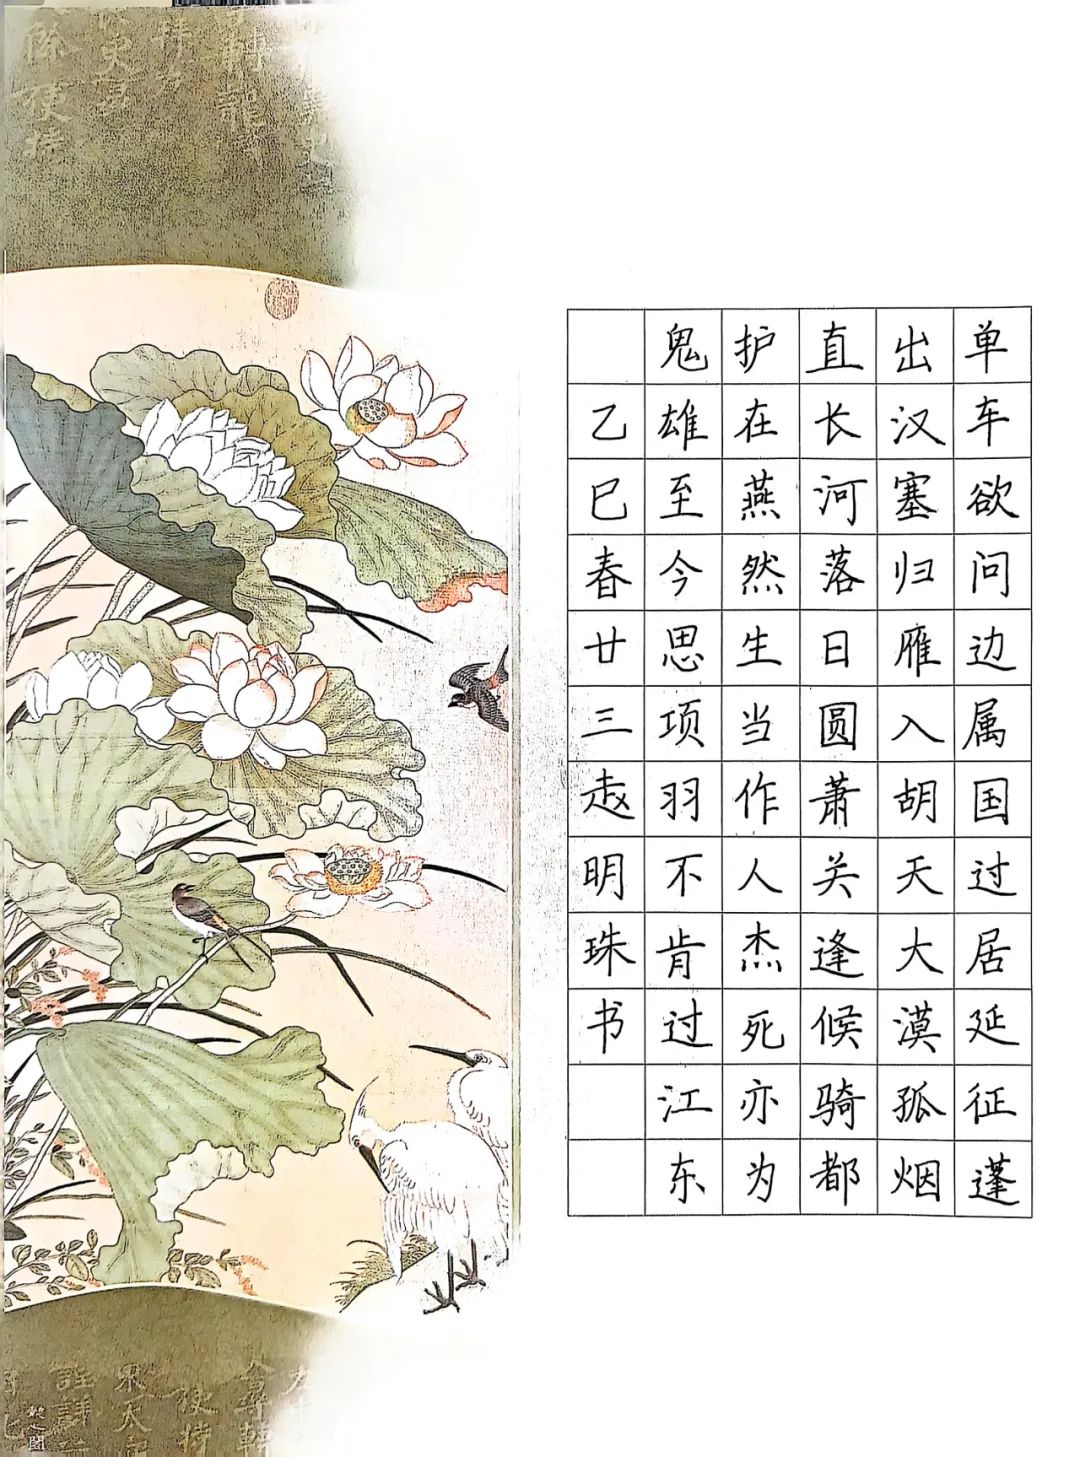 单车欲问边属国过居延征蓬
出汉塞归雁入胡天大漠孤烟
直长河落日圆萧关逢候骑都
护在燕然生当作人杰死亦为
鬼雄至今思项羽不肯过江东
乙巳春廿三赵明珠书